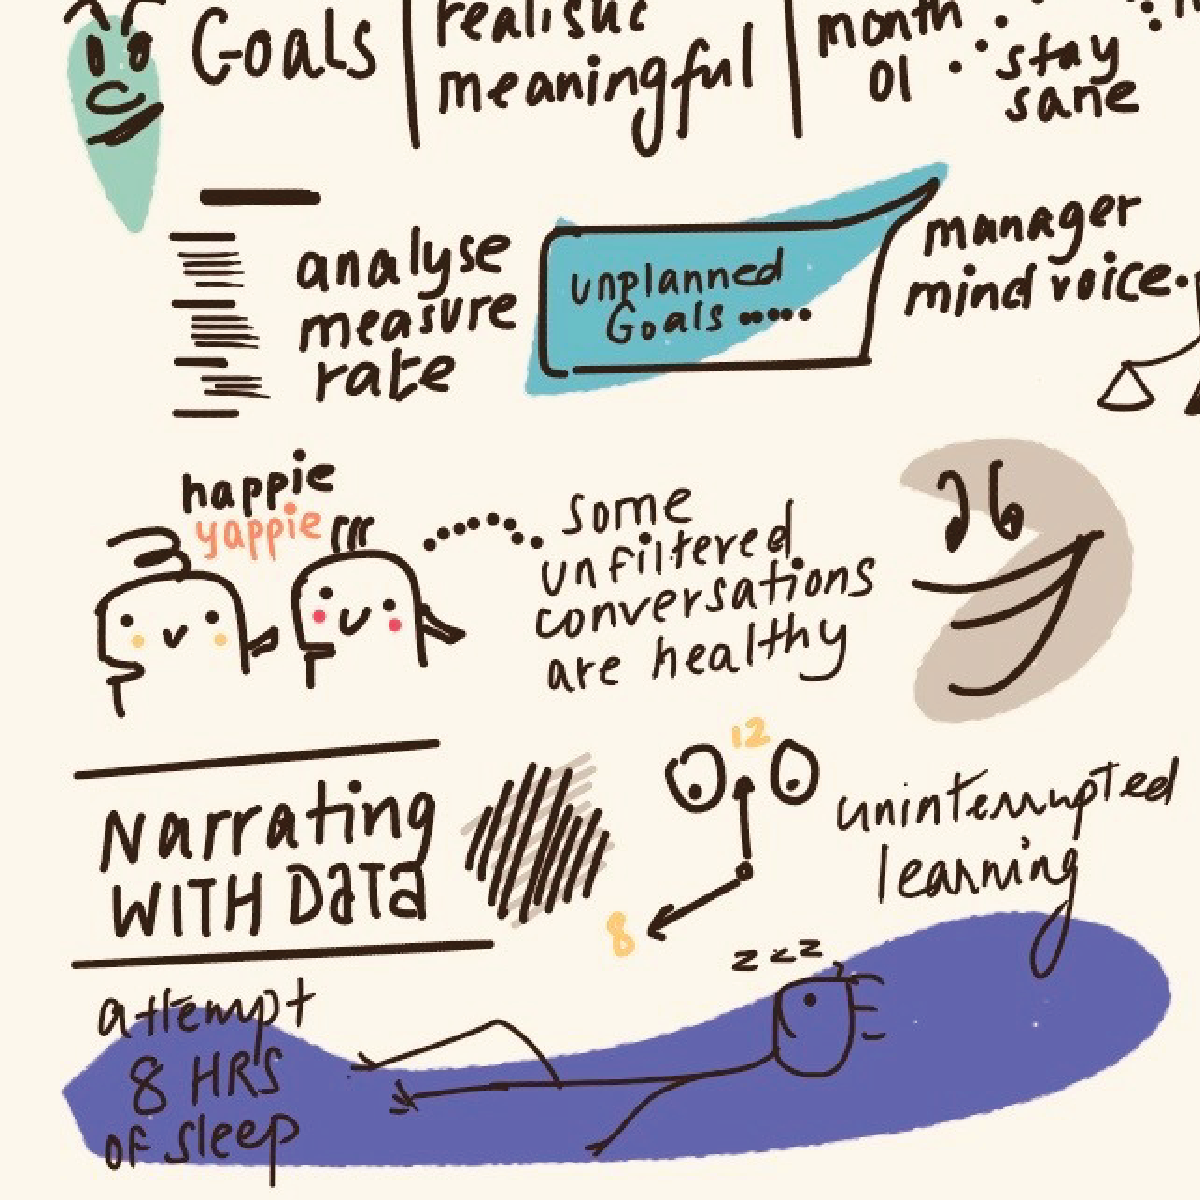 Goals
realistic
meaningful
month
01
stay
sane
analyse
measure
rate
unplanned
Goals .....
manager
mind voice.
happie
yappie
some
unfiltered
conversations
are healthy
Narrating
WITH Data
12
8
uninterrupted
learning
zzz
attempt
8 HRS
of sleep